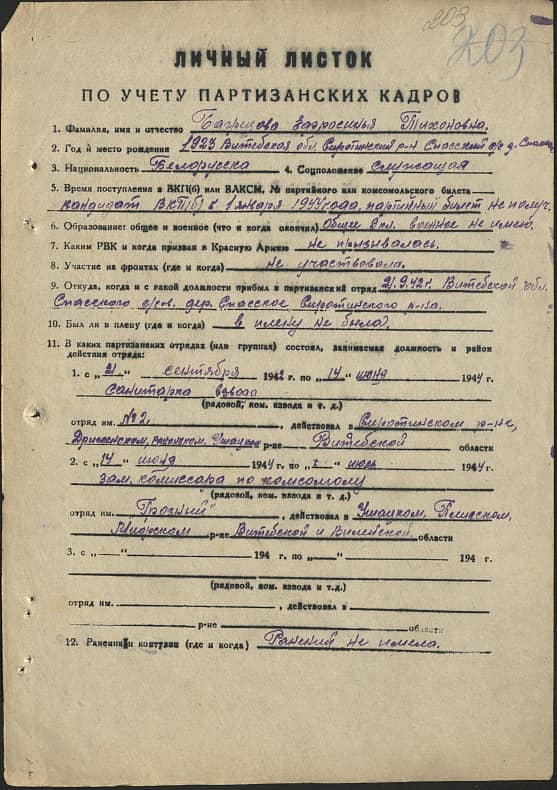 203
203
ЛИЧНЫЙ ЛИСТОК
ПО УЧЕТУ ПАРТИЗАНСКИХ КАДРОВ
1. Фамилия, имя и отчество Тихоновна.
2. Год и место рождения 1923 Витебская обл. Сиротинский р-н Спасский с/с д.
3. Национальность Белорусска 4. Соцположение служащая
5. Время поступления в ВКП(б) или ВЛКСМ, № партийного или комсомольского билета
кандидат ВКП(б) с 1 января 1944 года, партийный билет не получ.
6. Образование: общее и военное (что и когда окончил) Общее кл. военное не имею.
7. Каким РВК и когда призван в Красную Армию не призывалась.
8. Участие на фронтах (где и когда) не участвовала.
9. Откуда, когда и с какой должности прибыл в партизанский отряд 21.9.42г. Витебской обл.
Спасского с/сов. дер. Спасское Сиротинского р-на.
10. Был ли в плену (где и когда) в плену не была.
11. В каких партизанских отрядах (или группах) состоял, занимаемая должность и район
действия отряда:
1. с „21" сентября 1942 г. по „14" июня 1944 г.
санитарка взвода
(рядовой, ком. взвода и т. д.)
отряд им. №2. , действовал в Сиротинском р-не,
Дриссенском, Ушацком р-не Витебской области
2. с „14" июня 1944 г. по „1" июль 1944 г.
зам. комиссара по комсомолу
(рядовой, ком. взвода и т. д.)
отряд им. "Грозный" , действовал в Ушацком, Плисском,
Миорском р-не Витебской и Вилейской области
3. с „ —" 194 г. по „ —" 194 г.
(рядовой, ком. взвода и т.д.)
отряд им. , действовал в
р-не области
12. Ранения и контузии (где и когда) Ранений не имела.